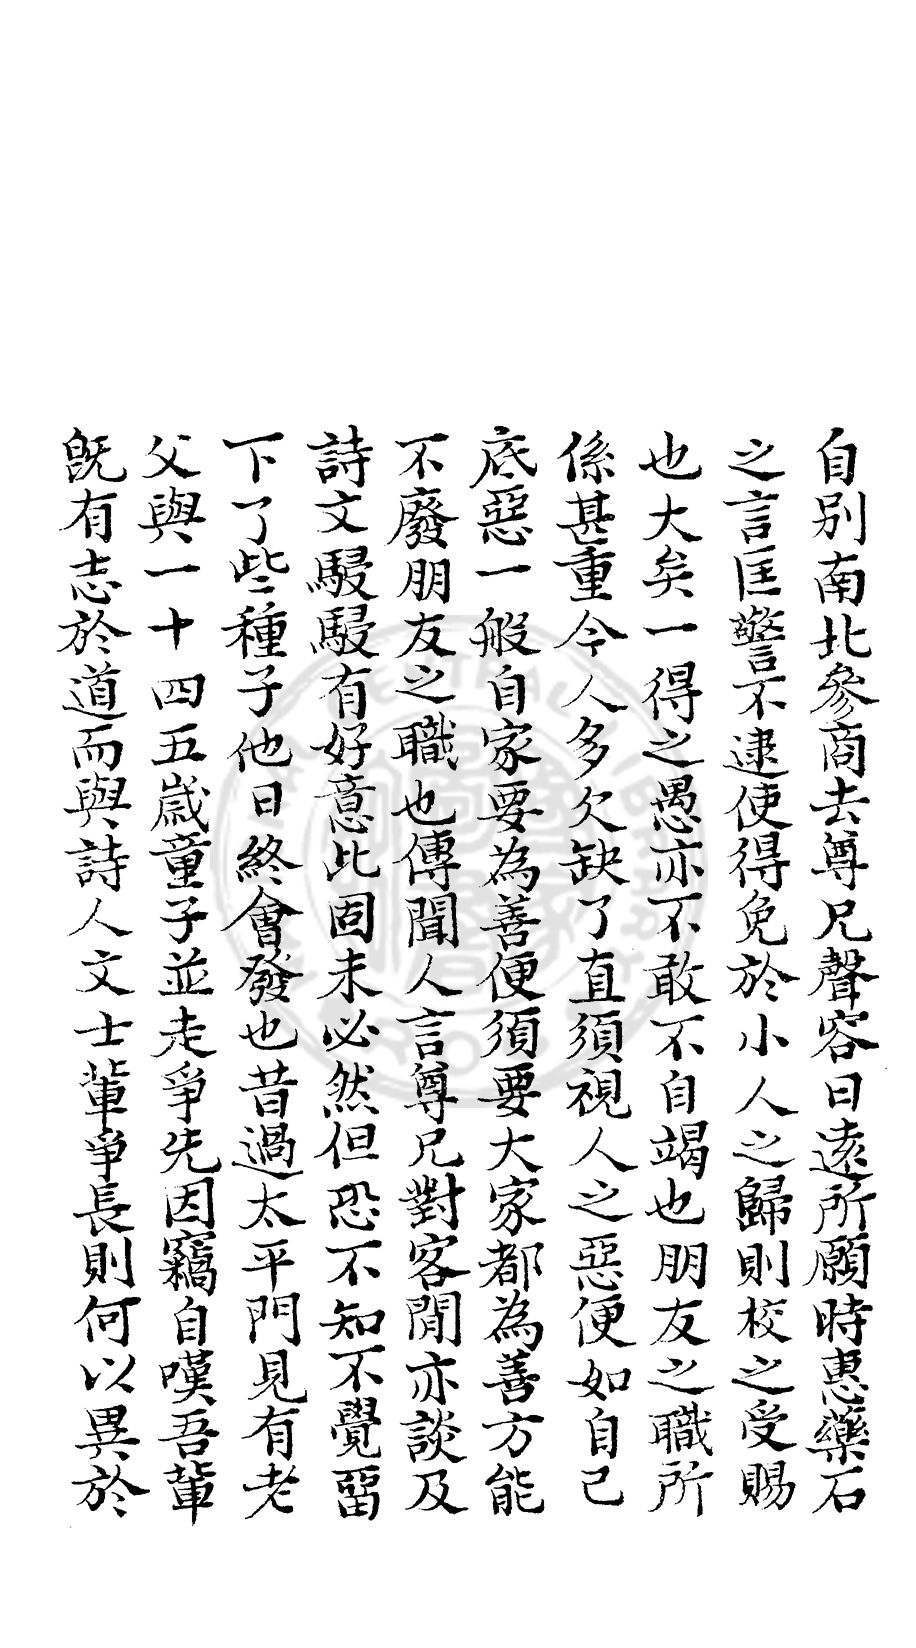 自別南北參商去尊兄聲容日遠所願時惠藥石
之言匡警不逮使得免於小人之歸則校之受賜
也大矣一得之愚亦不敢不自竭也朋友之職所
係甚重今人多欠缺了直須視人之惡便如自己
底惡一般自家要為善便須要大家都為善方能
不廢朋友之職也傳聞人言尊兄對客閒亦談及
詩文駸駸有好意此固未必然但恐不知不覺畱
下了些種子他日終會發也昔過太平門見有老
父與一十四五歲童子並走爭先因竊自嘆吾輩
旣有志於道而與詩人文士輩爭長則何以異於